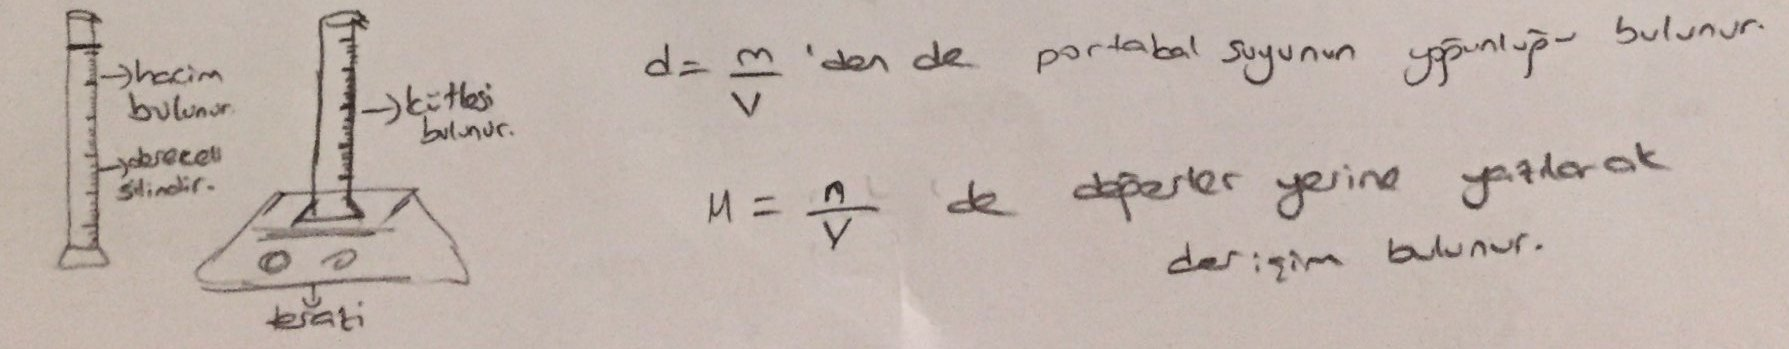 →hacim
bulunur.
→dereceli
silindir.
→kütlesi
bulunur.
terazi
d = m / V 'den de portakal suyunun yoğunluğu bulunur.
M = n / V de değerler yerine yazılarak
derişim bulunur.